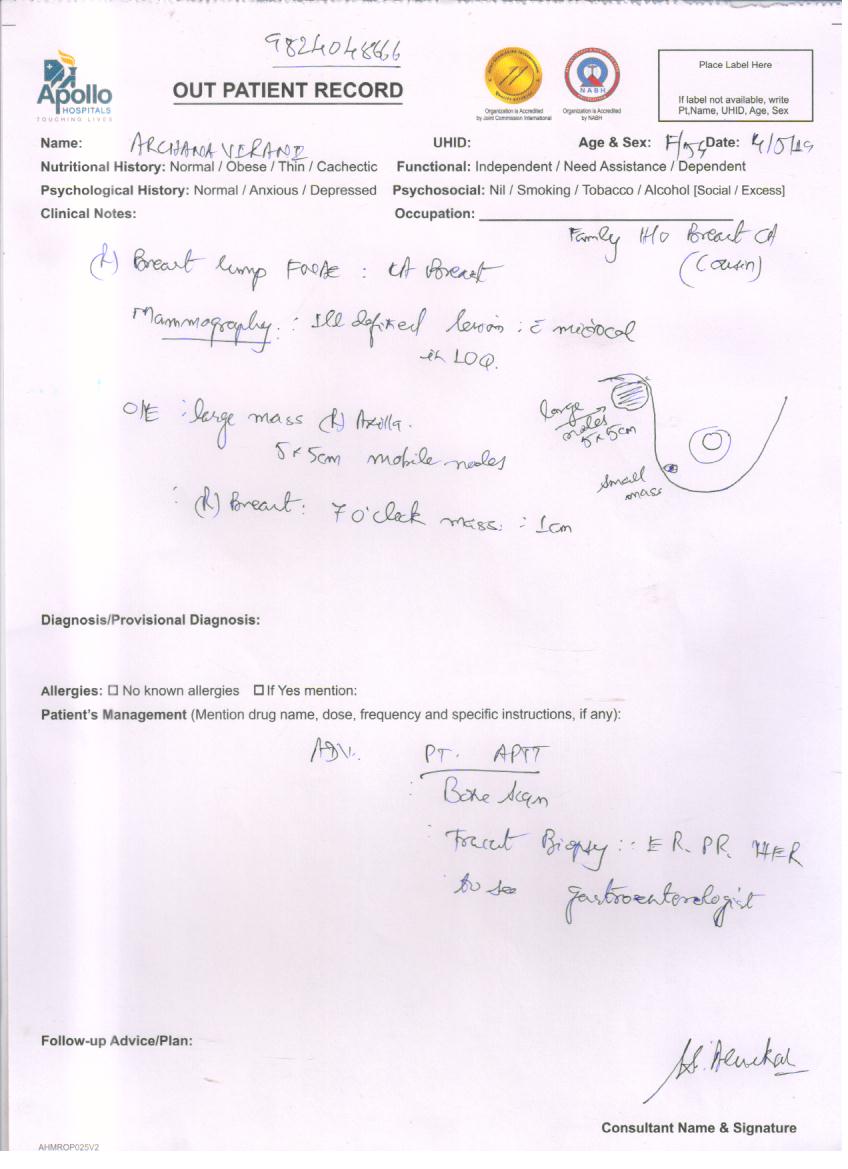 9824048666
Apollo
HOSPITALS
TOUCHING LIVES
OUT PATIENT RECORD
Organization is Accredited
by Joint Commission International
NABH
Organization is Accredited
by NABH
Place Label Here
If label not available, write
Pt,Name, UHID, Age, Sex
Name: ARCHANA VIRANI UHID: Age & Sex: F/54 Date: 4/5/19
Nutritional History: Normal / Obese / Thin / Cachectic Functional: Independent / Need Assistance / Dependent
Psychological History: Normal / Anxious / Depressed Psychosocial: Nil / Smoking / Tobacco / Alcohol [Social / Excess]
Clinical Notes: Occupation:
Family H/o Breast CA
(Cousin)
(R) Breast lump : CA Breast
Mammography : Ill defined lesion :
in LOQ.
O/E : large mass (R) Axilla.
5 x 5cm mobile nodes
: (R) Breast : 7 o'clock mass : 1cm
large
nodes
5 x 5cm
small
mass
Diagnosis/Provisional Diagnosis:
Allergies: ☐ No known allergies ☐ If Yes mention:
Patient's Management (Mention drug name, dose, frequency and specific instructions, if any):
ADV. PT. APTT
Bone Scan
Trucut Biopsy :: ER. PR. HER
to see gastroenterologist
Follow-up Advice/Plan:
Consultant Name & Signature
AHMROP025V2